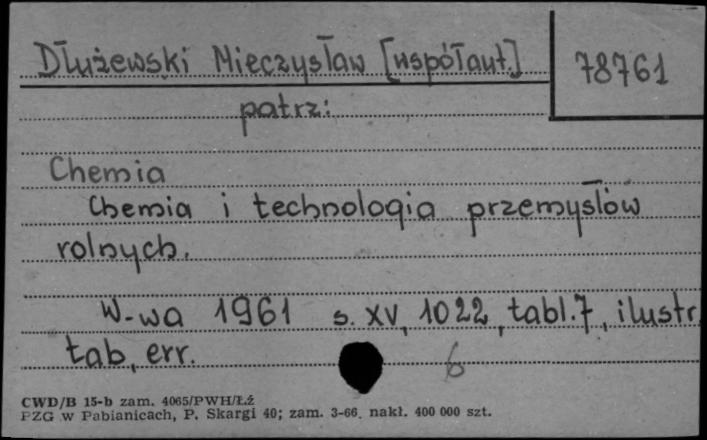 Dłużewski Mieczysław [współaut.]
78761
patrz:
Chemia
Chemia i technologia przemysłów
rolnych.
W-wa 1961 s. XV, 1022, tabl. 7, ilustr.
tab, err.
6
CWD/B 15-b zam. 4065/PWH/Łź
PZG w Pabianicach, P. Skargi 40; zam. 3-66. nakł. 400 000 szt.